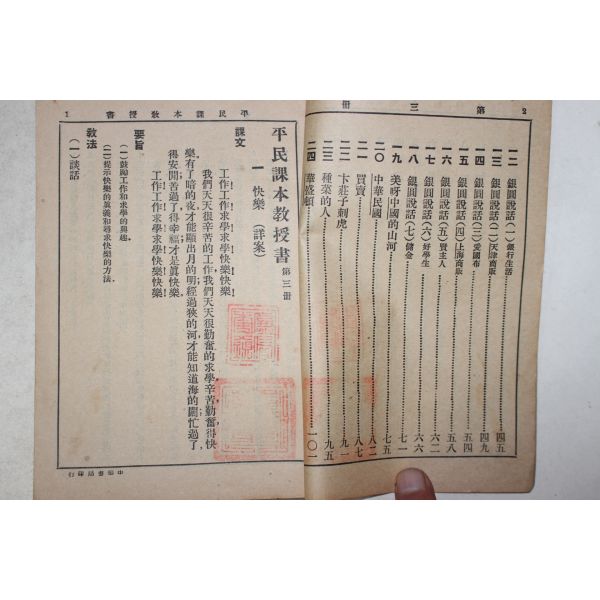 2 第三冊
一二 銀圓說話（一）銀行生活 四五
一三 銀圓說話（二）天津商販 四九
一四 銀圓說話（三）愛國布 五四
一五 銀圓說話（四）上海商販 五八
一六 銀圓說話（五）賢主人 六二
一七 銀圓說話（六）好學生 六六
一八 銀圓說話（七）儲金 七一
一九 美呀中國的山河 七五
二〇 中華民國 八二
二一 買賣 八七
二二 卞莊子刺虎 九一
二三 種菜的人 九五
二四 華盛頓 一〇一
平民課本教授書 1
平民課本教授書 第三冊
一 快樂 （詳案）
課文
工作！工作！求學！求學！快樂！快樂！
我們天天很辛苦的工作，我們天天很勤奮的求學，辛苦勤奮得快
樂，有了暗的夜，才能顯出月的明；經過狹的河，才能知道海的闊；忙過了，
得安閒；苦過了，得幸福，才是眞快樂。
工作！工作！求學！求學！快樂！快樂！
要旨
（一）鼓勵工作和求學的興趣。
（二）提示快樂的眞義和尋求快樂的方法。
教法
（一）談話
中華書局印行